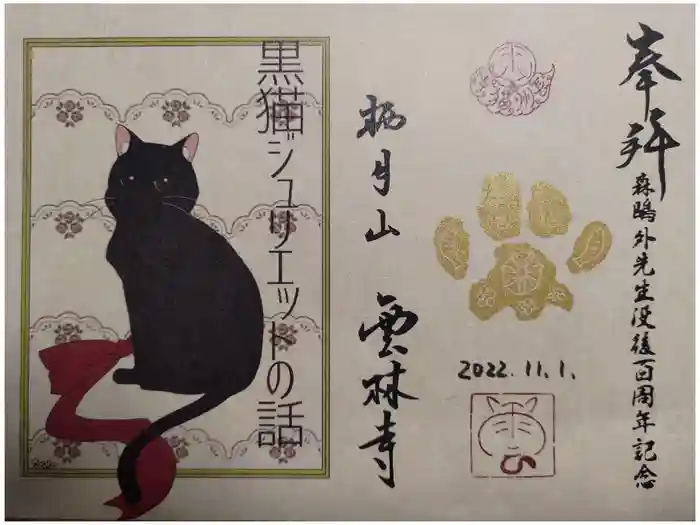 奉拝
森鴎外先生没後百周年記念
2022.11.1.
栖月山
雲林寺
黒猫ジュリエットの話